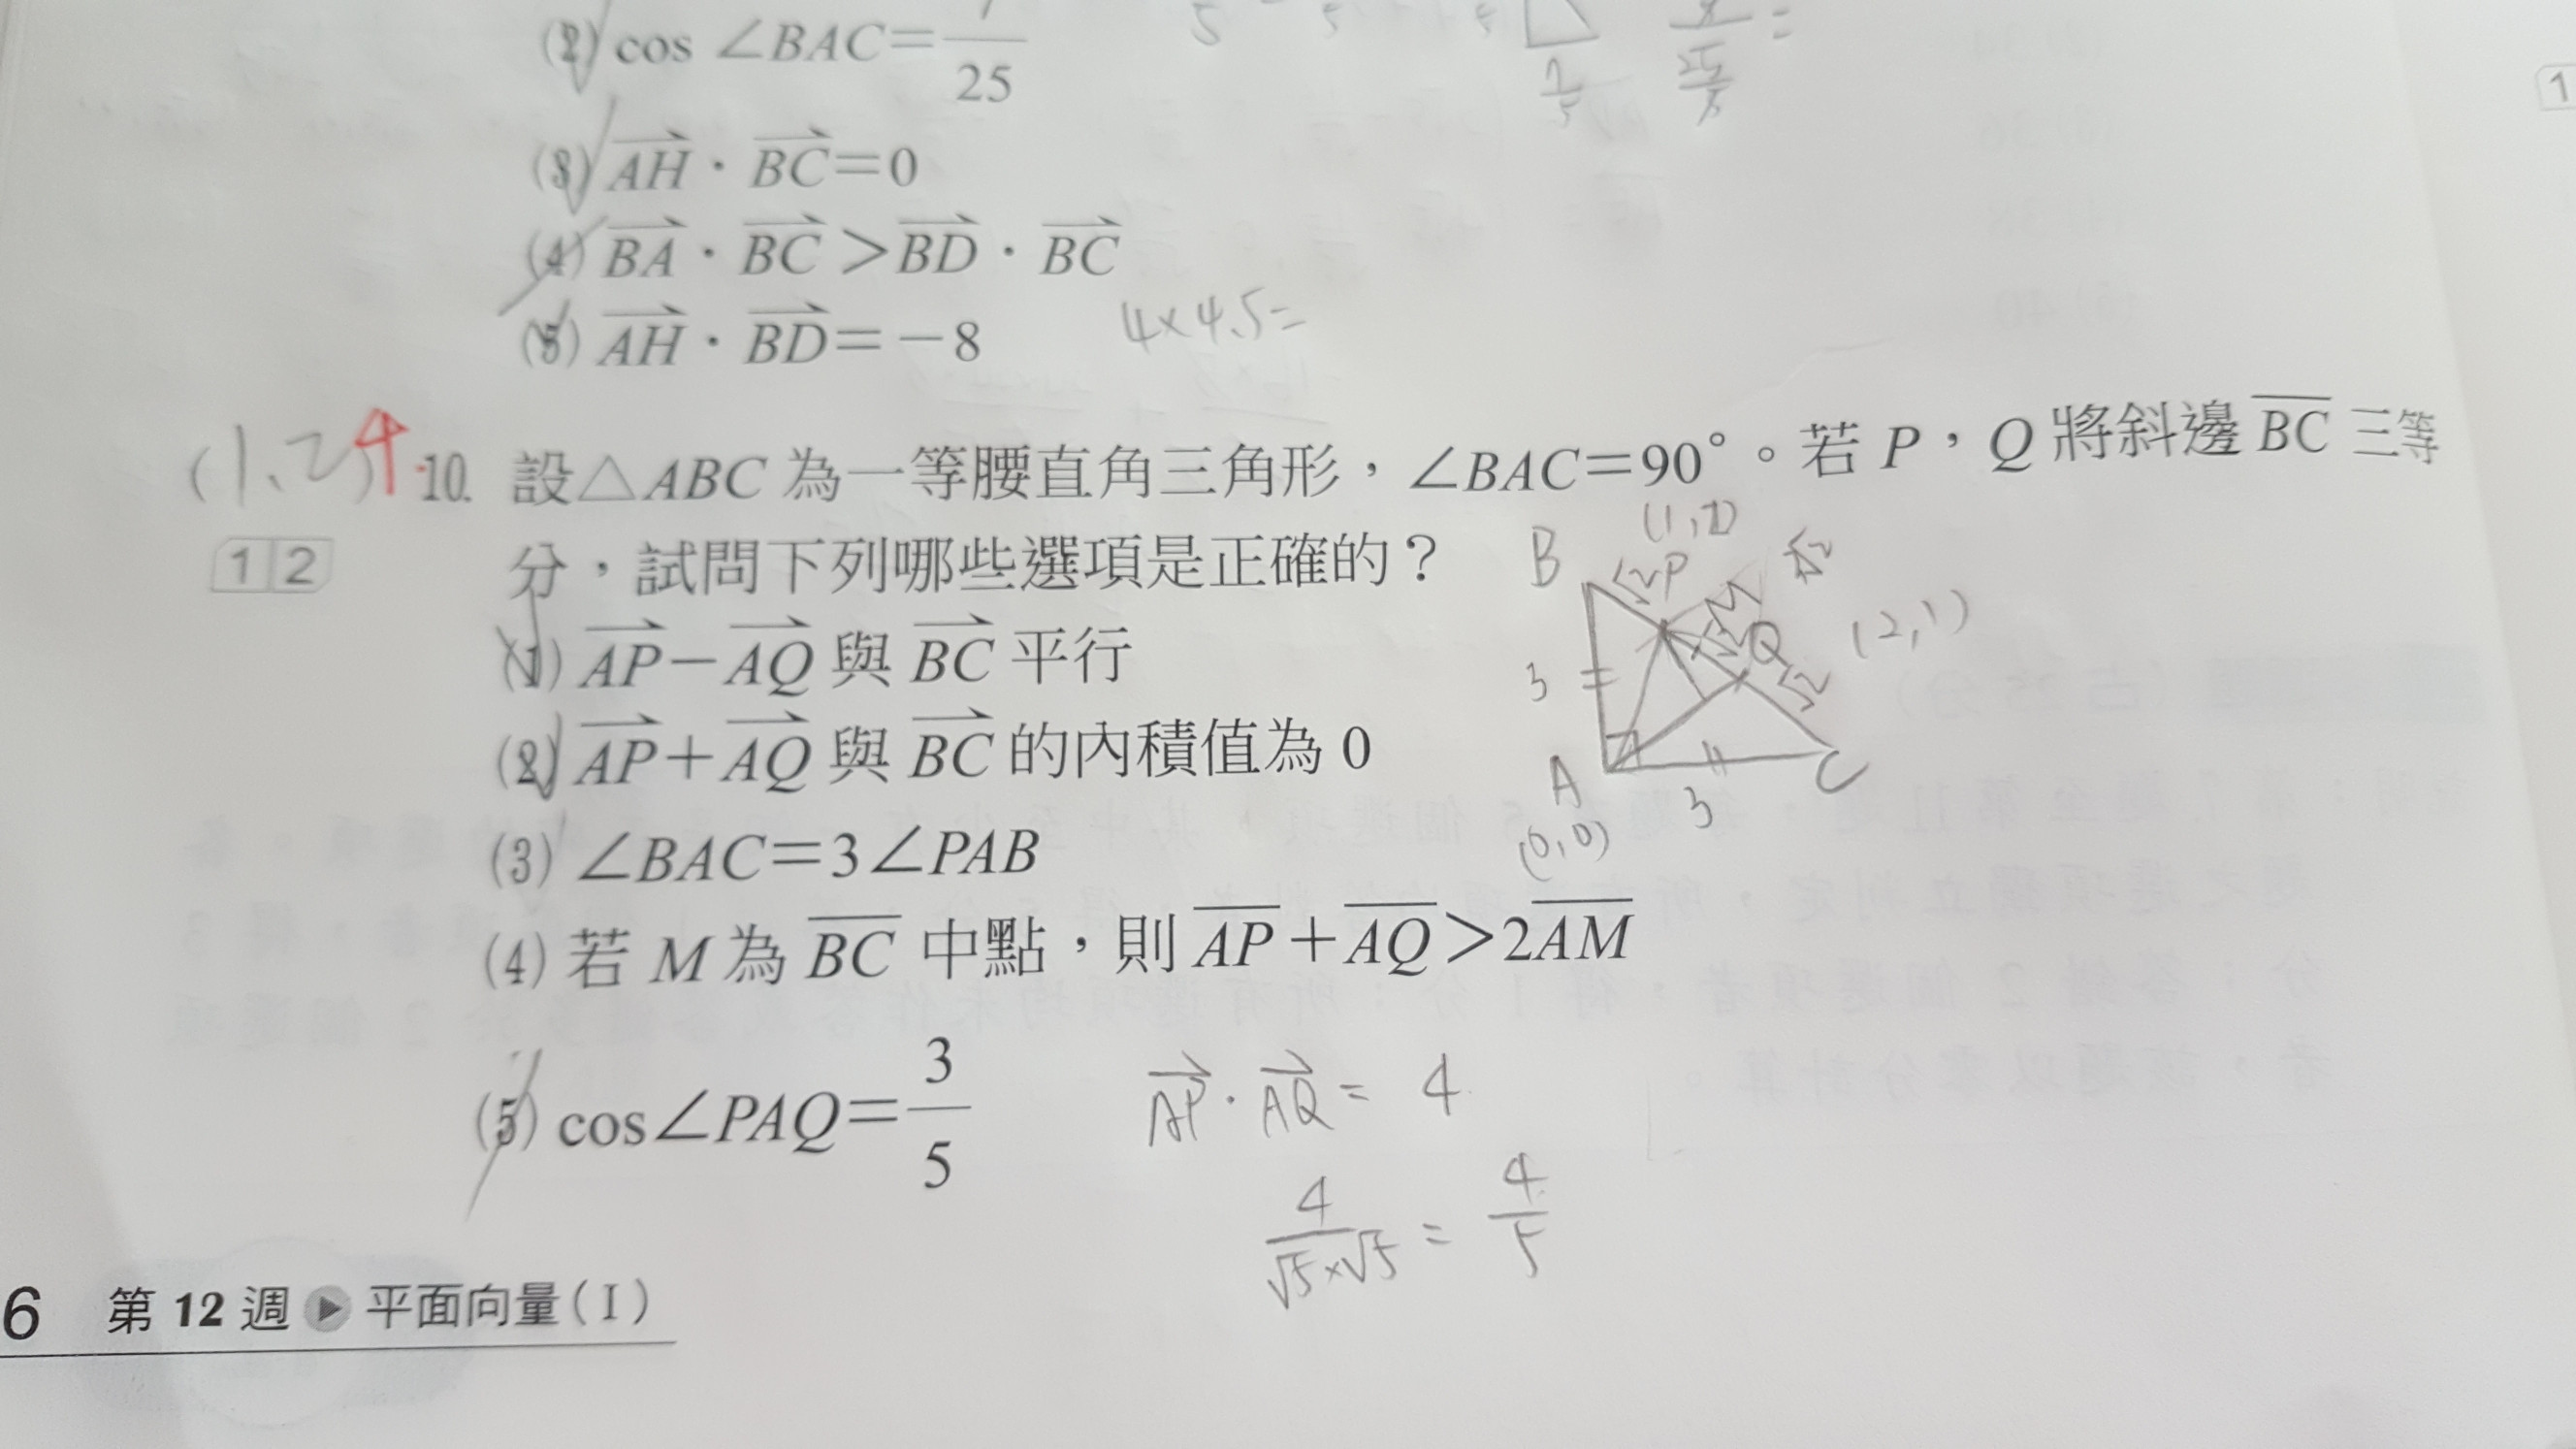 (2) cos ∠BAC=7/25
(3) AH · BC=0
(4) BA · BC>BD · BC
(5) AH · BD=-8
4×4.5=
(1、2)4
10. 設△ABC 為一等腰直角三角形，∠BAC=90°。若 P，Q 將斜邊 BC 三等
12
分，試問下列哪些選項是正確的？
(1) AP-AQ 與 BC 平行
(2) AP+AQ 與 BC 的內積值為 0
(3) ∠BAC=3∠PAB
(4) 若 M 為 BC 中點，則 AP+AQ>2AM
(5) cos∠PAQ=3/5
B
P
M
Q
(2,1)
√2
√2
3
A
3
C
(0,0)
AP · AQ = 4
4/(√5×√5) = 4/5
6 第 12 週 ▶ 平面向量(I)